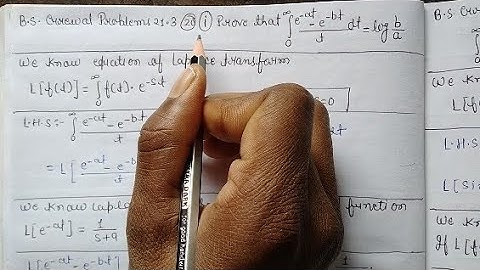 B.S. Grewal Problems 21.3 20 i Prove that ∫₀^∞ (e^-at - e^-bt)/t dt = log b/a
We know equation of Laplace transform
L[f(t)] = ∫₀^∞ f(t). e^-st
=0
L.H.S:- ∫₀^∞ (e^-at - e^-b
t
= L[ (e^-at - e^-b
t
We know Lapl function
L[e^-at] = 1/(s+a)
L[e^-at - e^-bt]
We kno
L[f(t
L.H.S
= L
L[Si
We k
If L[